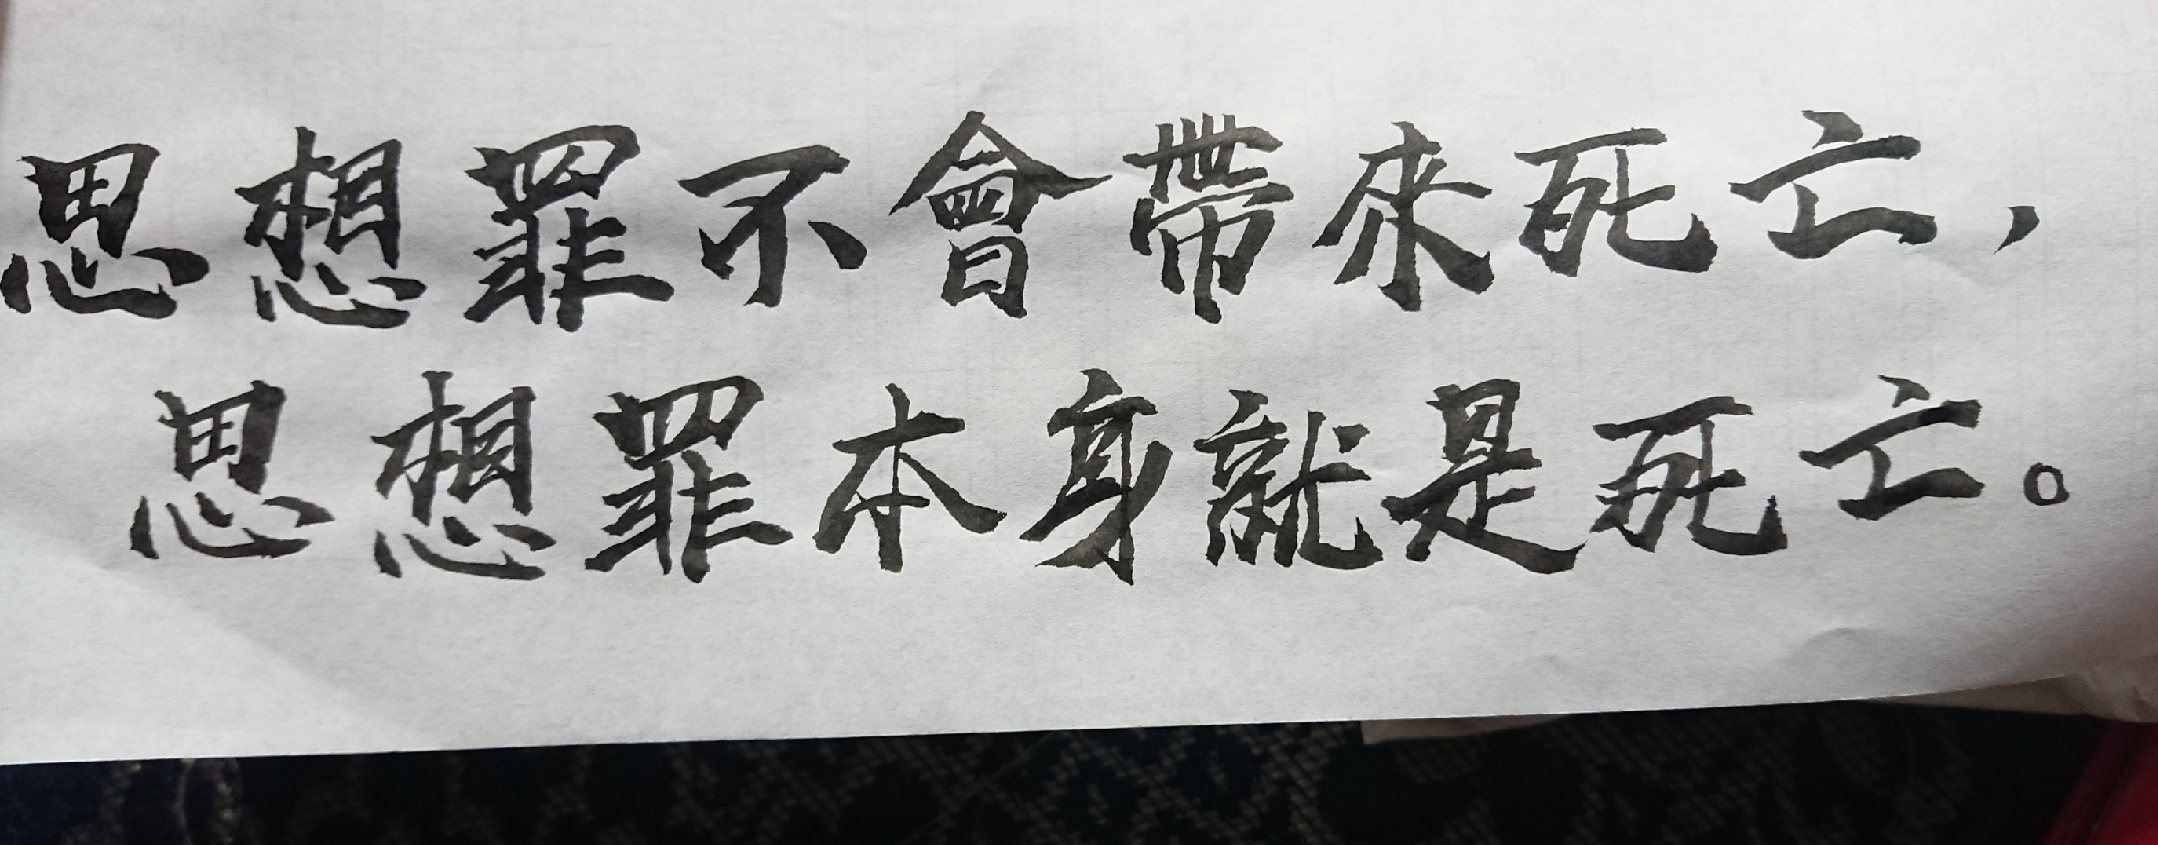 思想罪不會帶來死亡，
思想罪本身就是死亡。